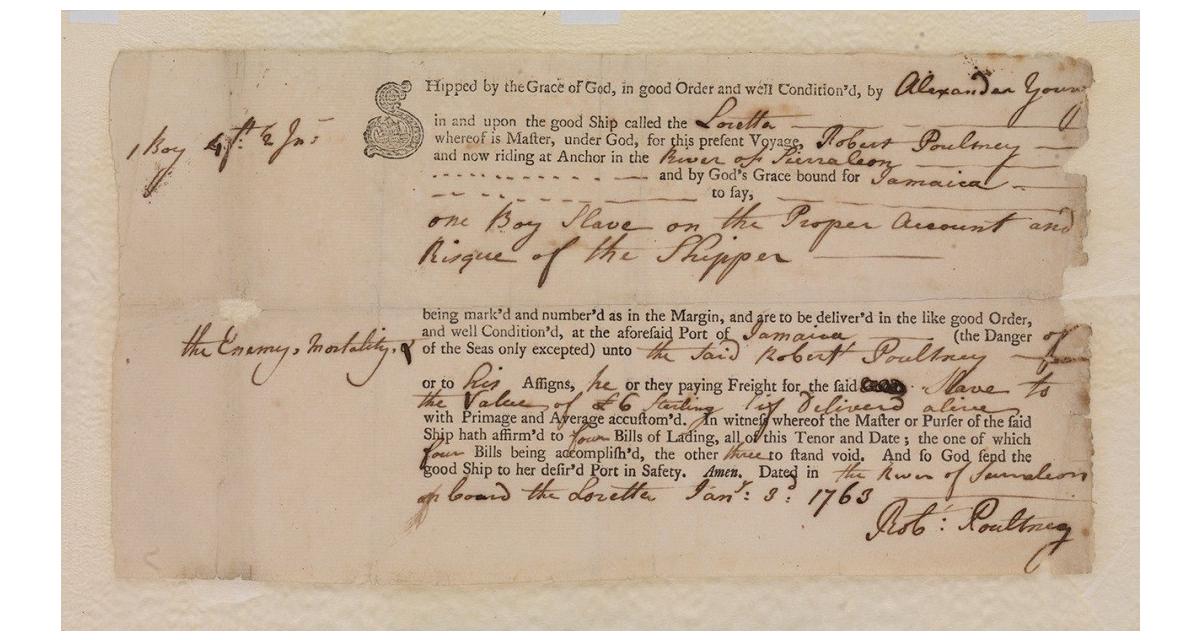 Shipped by the Grace of God, in good Order and well Condition'd, by Alexander Youn
in and upon the good Ship called the Loretta
whereof is Master, under God, for this present Voyage, Robert Poultney
and now riding at Anchor in the River of Sierraleon
and by God's Grace bound for Jamaica
to say,
1 Boy 4ft: 2 Ins
one Boy Slave on the Proper Account and
Risque of the Shipper
being mark'd and number'd as in the Margin, and are to be deliver'd in the like good Order,
and well Condition'd, at the aforesaid Port of Jamaica (the Danger of
the Enemy, Mortality, &
of the Seas only excepted) unto the said Robert Poultney
or to his Assigns, he or they paying Freight for the said Slave to
the Value of £6 Sterling if Deliverd alive
with Primage and Average accustom'd. In witness whereof the Master or Purser of the said
Ship hath affirm'd to four Bills of Lading, all of this Tenor and Date; the one of which
four Bills being accomplish'd, the other three to stand void. And so God send the
good Ship to her desir'd Port in Safety. Amen. Dated in the River of Sierraleon
on board the Loretta Jany: 3d: 1763
Robt: Poultney